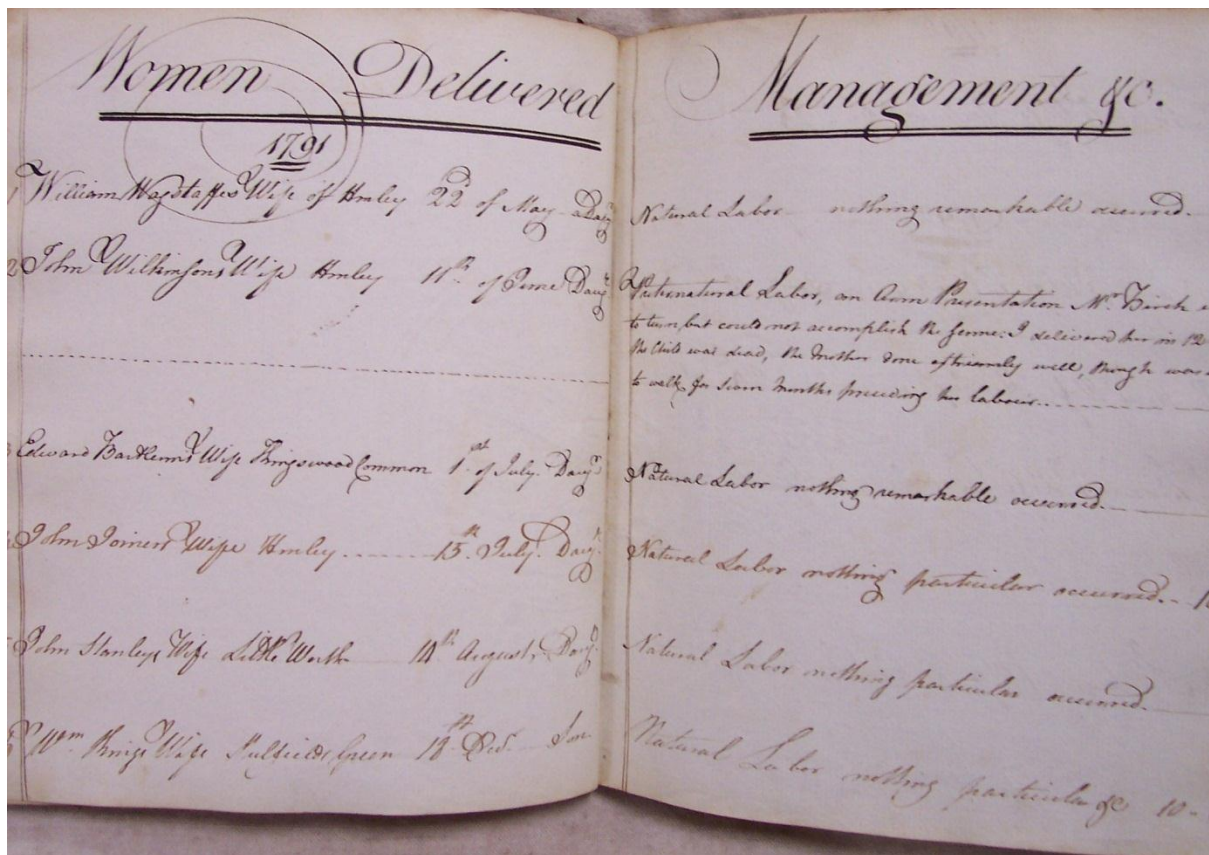 Women Delivered
1791
1 William Wagstaffes Wife of Henley 22d of May a Daugr
2 John Wilkinsons Wife Henley 11th of June Daugr
Edward Wife Kingswood Common 1st of July Daugr
John Joiners Wife Henley 15th July Daugr
John Stanleys Wife Little Worth 14th August Daugr
Wm Kings Wife Green 18th Decr Son
Management &c.
Natural Labor nothing remarkable occured.
Preternatural Labor, an Arm Presentation Mr. Birch
to turn, but could not accomplish the same: I delivered her in 12
the Child was dead, the Mother done extreamly well, though was
to walk for seven Months preceeding her labour.
Natural Labor nothing remarkable occurred.
Natural Labor nothing particular occurred.
Natural Labor nothing particular occurred.
Natural Labor nothing particular &c 10